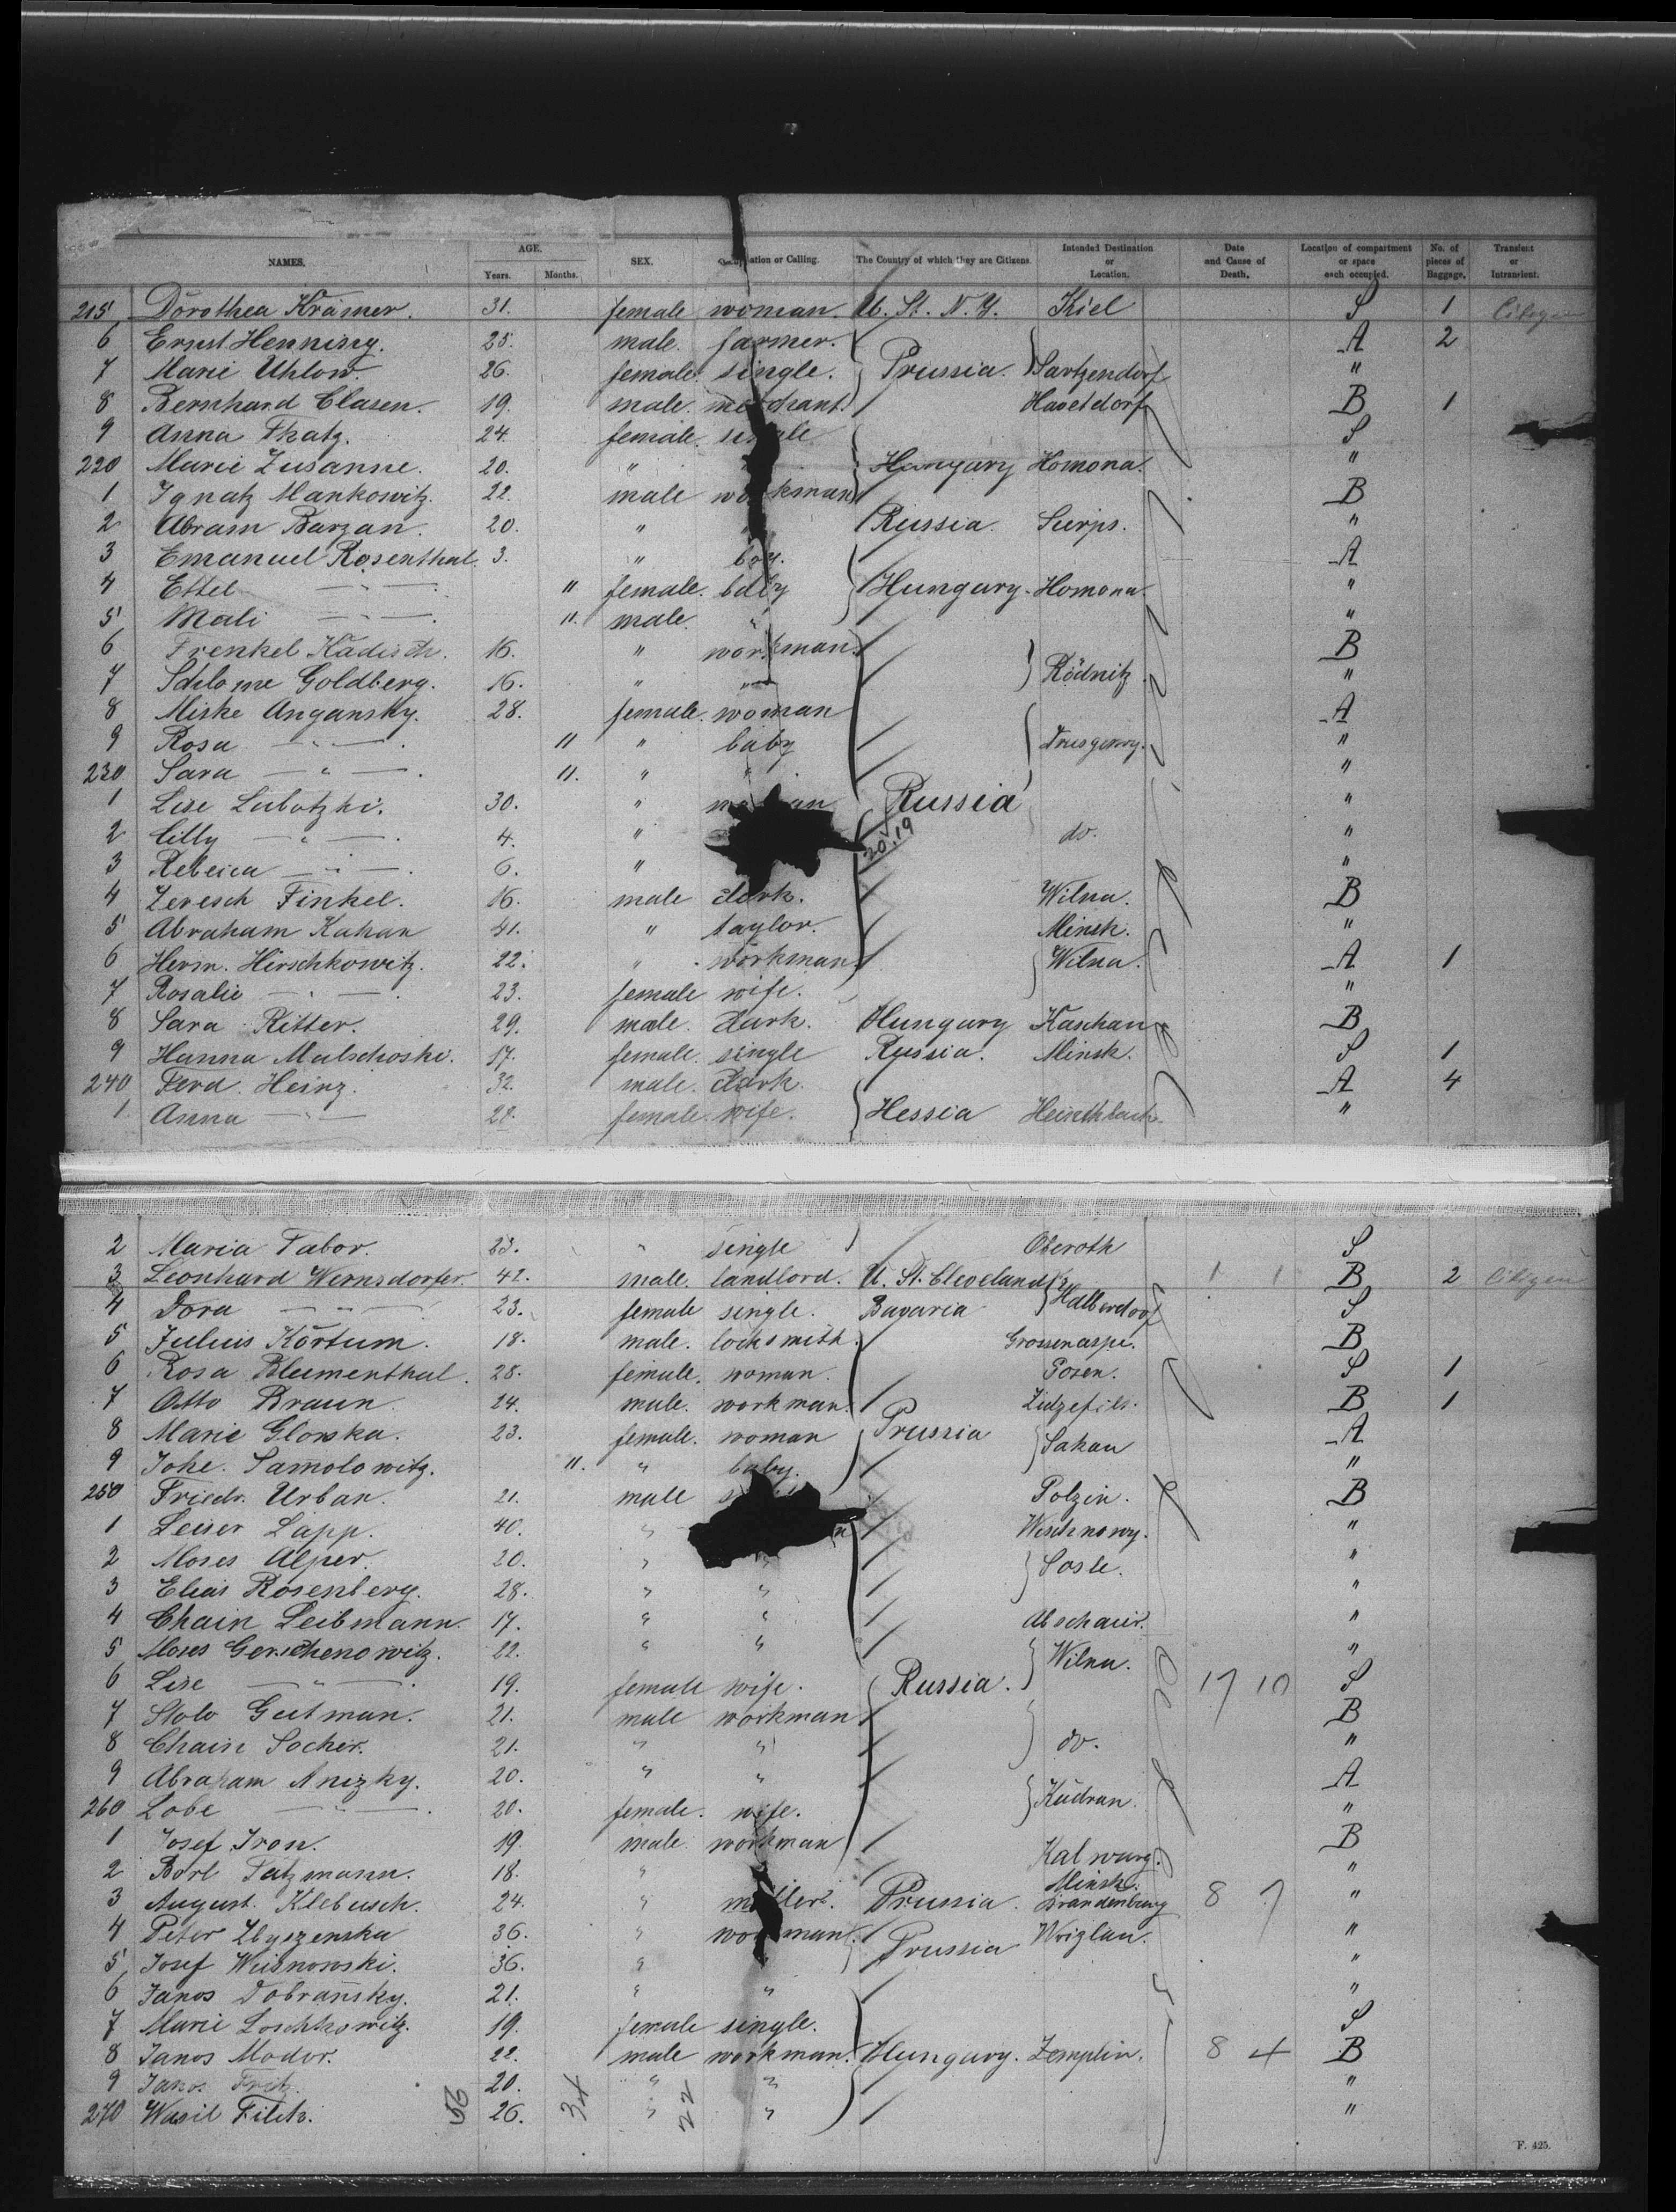 NAMES. AGE. Years. Months. SEX. ation or Calling. The Country of which they are Citizens. Intended Destination or Location. Date and Cause of Death. Location of compartment or space each occupied. No. of pieces of Baggage. Transient or Intransient.
215 Dorothea Krämer. 31. female woman. U. St. N. Y. Kiel S 1 Citizen
6 Ernst Henning. 25. male. farmer. A 2
7 Marie Uhlow. 26. female. single. Prussia. Sartzendorf "
8 Bernhard Clasen. 19. male. merchant. B 1
9 Anna Thatz. 24. female. single S
220 Marie Zusanne. 20. " Hungary Homona. "
1 Ignatz Mankowitz. 22. male workman B
2 Abram Barzan. 20. " Russia. Sierps. "
3 Emanuel Rosenthal. 3. " boy. A
4 Ettel — " — 11 female. baby Hungary. Homona. "
5 Mali — " — 11. male. " "
6 Frenkel Kadisch. 16. " workman. B
7 Schlome Goldberg. 16. " " Rödnitz "
8 Miske Angansky. 28. female. woman A
9 Rosa — " — . 11 " baby "
230 Sara — " — . 11. " " "
1 Lise Lubotzki. 30. " Russia "
2 Cilly — " — . 4. " 20.19 do. "
3 Rebecca — " — . 6. " "
4 Zeresch Finkel. 16. male clerk. Wilna. B
5 Abraham Kahan 41. " taylor. Minsk. "
6 Herm. Hirschkowitz. 22. " workman. Wilna. A 1
7 Rosalie — " — . 23. female wife. "
8 Sara Ritter. 29. male. clerk. Hungary Kaschau B
9 Hanna Malschoski. 17. female. single Russia. Minsk. S 1
240 Ferd. Heinz. 32. male. clerk. A 4
1 Anna — " — female. wife. Hessia "
2 Maria Tabor. 23. " single Oberoth S
3 Leonhard Wernsdorfer. 42. male. landlord. U. St. Cleveland 1 1 B 2 Citizen
4 Dora — " — 23. female single. Bavaria Halberdorf S
5 Julius Kortum. 18. male. locksmith. Grossenaspe. B
6 Rosa Blumenthal. 28. female. woman. Posen. S 1
7 Otto Braun. 24. male. workman. B 1
8 Marie Glonska. 23. female. woman Prussia Sakau A
9 Johe. Samolowitz. 11. " baby. "
250 Friedr. Urban. 21. male Polzin. B
1 Leiser Lapp. 40. " Wischnowy. "
2 Moses Alper. 20. " " Sosle. "
3 Elias Rosenberg. 28. " " "
4 Chain Leibmann. 17. " " "
5 Moses Gerschenowitz. 22. " " Wilna. "
6 Lise — " — . 19. female wife. Russia. 17 10 S
7 Stolo Gutman. 21. male workman B
8 Chaim Socher. 21. " " do. "
9 Abraham Anizky. 20. " " A
260 Lobe — " — . 20. female. wife. Kudran. "
1 Josef Iron. 19. male workman Kalwary. B
2 Borl Tatzmann. 18. " Minsk. "
3 August. Klebusch. 24. " miller. Prussia. Brandenburg 8 7 "
4 Peter Zbyszenska 36. " workman. "
5 Josef Wisnowski. 36. " " Prussia "
6 Janos Dobransky. 21. " " "
7 Marie Loschkowitz. 19. female single. S
8 Janos Modor. 22. male workman. Hungary. Zemplin. 8 4 B
9 Janos Fritz. 20. " " "
270 Wasil Filek. 26. " " "
56 34 22
F. 425.